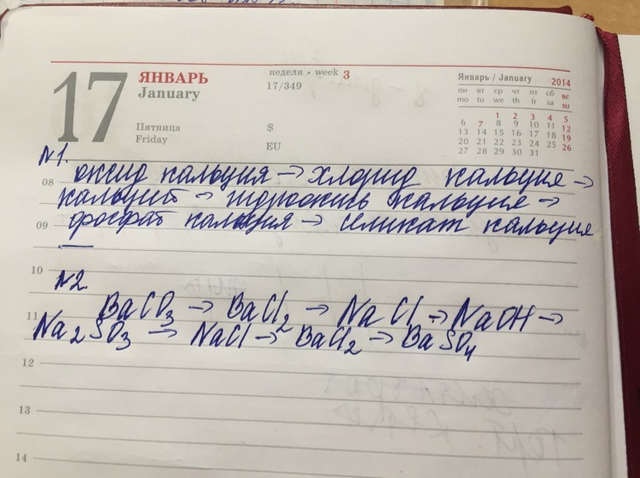 17 ЯНВАРЬ
January
Пятница
Friday
неделя • week 3
17/349
$
EU
Январь / January 2014
пн вт ср чт пт сб вс
mo tu we th fr sa su
1 2 3 4 5
6 7 8 9 10 11 12
13 14 15 16 17 18 19
20 21 22 23 24 25 26
27 28 29 30 31
№1.
оксид кальция → хлорид кальция →
08 кальций → гидроокись кальция →
фосфат кальция → силикат кальция
09
10
№2.
BaCO3 → BaCl2 → NaCl → NaOH →
11 Na2SO3 → NaCl → BaCl2 → BaSO4
12
13
14